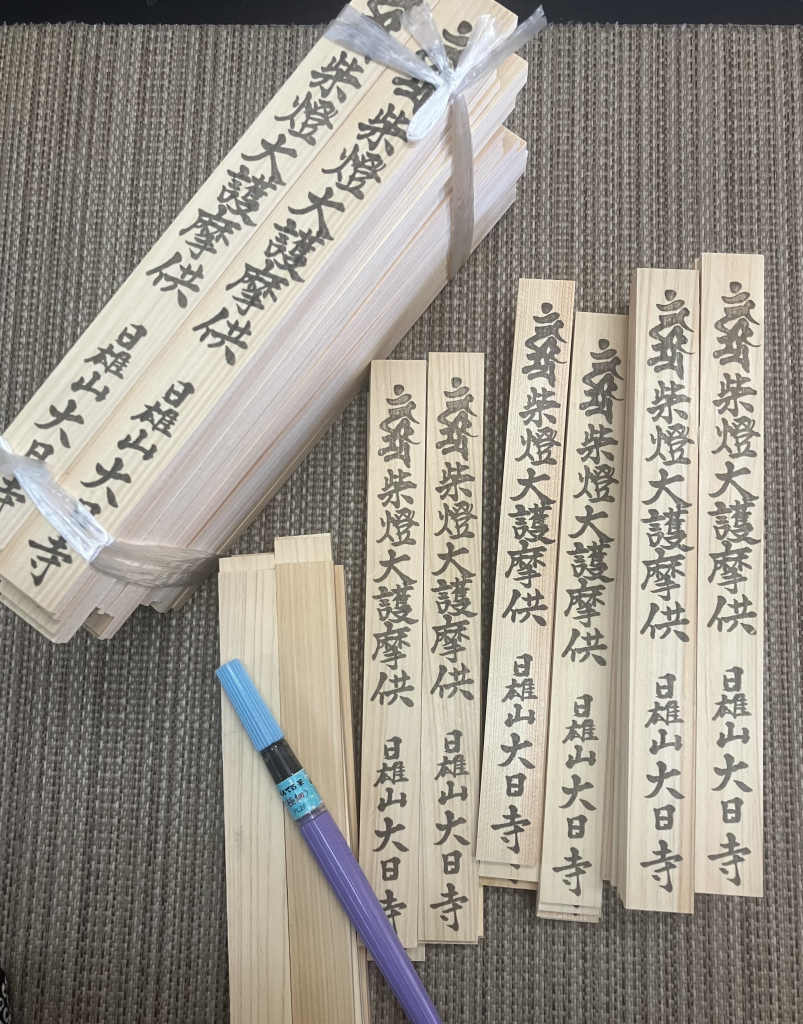 柴燈大護摩供 日雄山大日寺
柴燈大護摩供 日雄山大日寺
柴燈大護摩供 日雄山大日寺
柴燈大護摩供 日雄山大日寺
柴燈大護摩供 日雄山大日寺
柴燈大護摩供 日雄山大日寺
柴燈大護摩供 日雄山大日寺
柴燈大護摩供 日雄山大日寺
極細